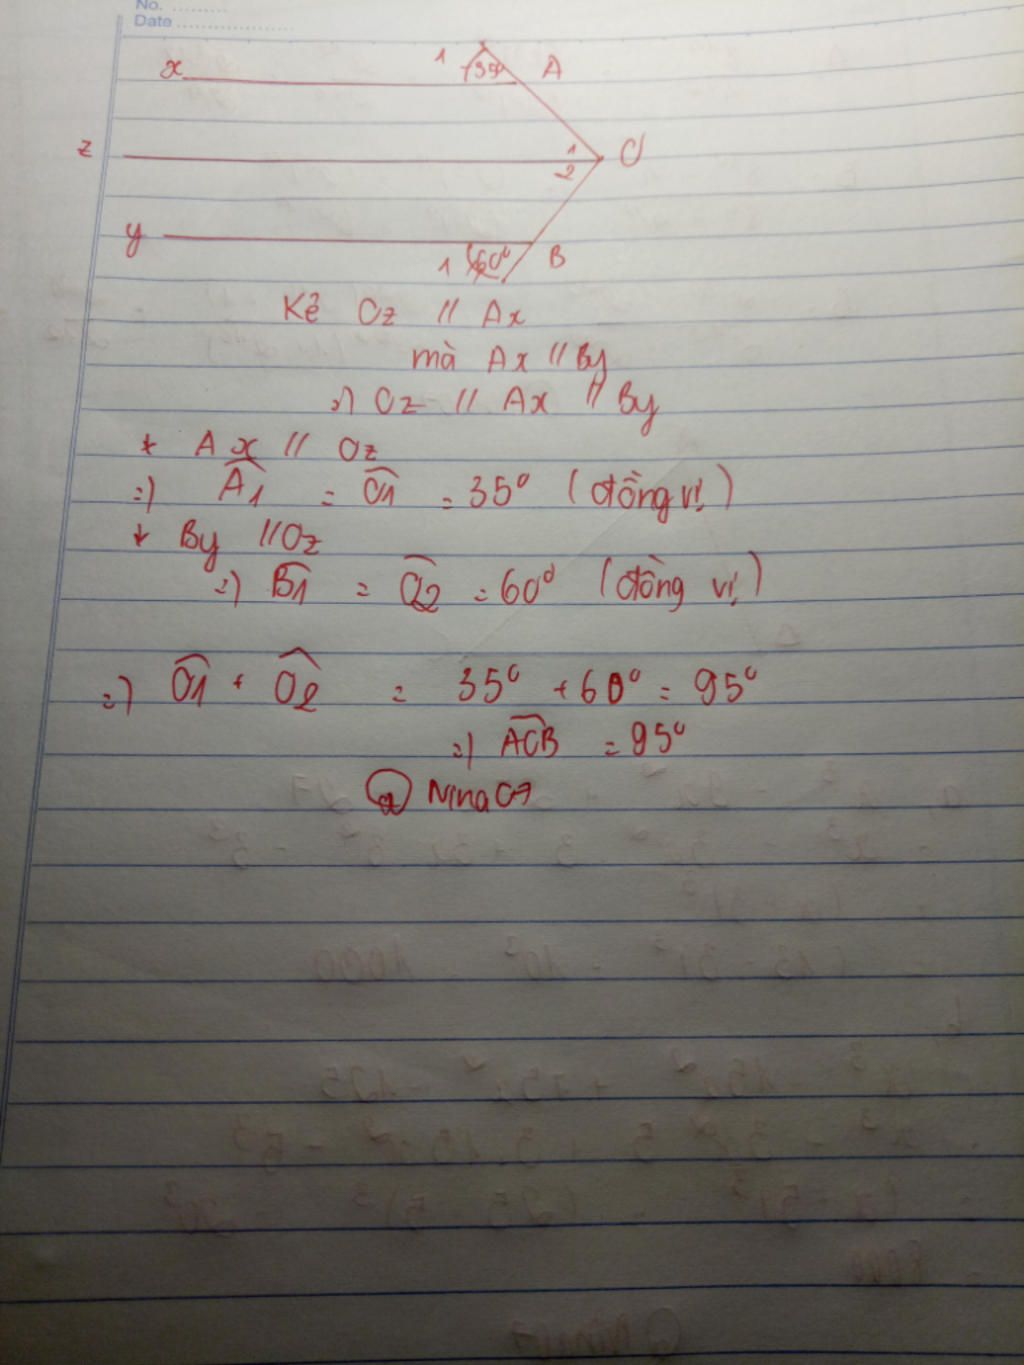 No. .........
Date .....................
1 35° A
x
z 1 O
2
y
1 60° B
Kẻ Oz // Ax
mà Ax // By
=) Oz // Ax // By
* Ax // Oz
=) A1 = O1 = 35° (đồng vị)
* By // Oz
=) B1 = O2 = 60° (đồng vị)
=) O1 + O2 = 35° + 60° = 95°
=) AOB = 95°